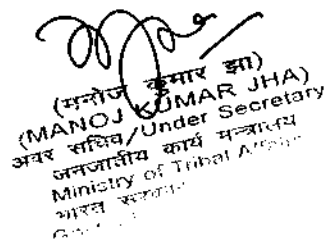 (मनोज कुमार झा)
(MANOJ KUMAR JHA)
अवर सचिव/Under Secretary
जनजातीय कार्य मन्त्रालय
Ministry of Tribal
भारत